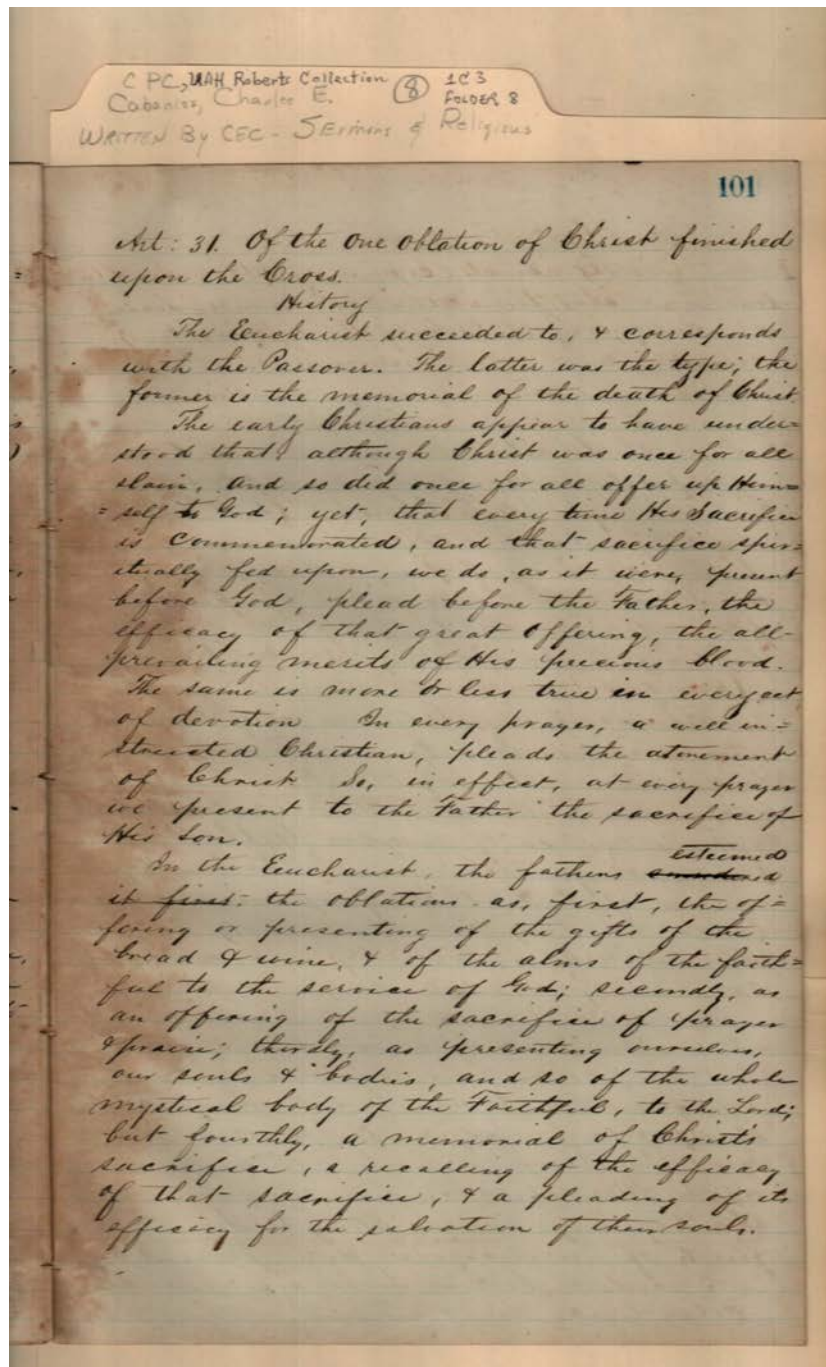 C PC, UAH Roberts Collection (8) 1C3
Cabaniss, Charles E. FOLDER 8
WRITTEN By CEC - SErmons & Religious
101
Art: 31. Of the One Oblation of Christ finished
upon the Cross.
History
The Eucharist succeeded to, & corresponds
with the Passover. The latter was the type; the
former is the memorial of the death of Christ.
The early Christians appear to have under=
stood that, although Christ was once for all
slain, and so did once for all offer up Him=
=self to God; yet, that every time His Sacrifice
is commemorated, and that sacrifice spir=
itually fed upon, we do, as it were, present
before God, plead before the Father, the
efficacy of that great Offering, the all-
prevailing merits of His precious blood.
The same is more or less true in every act
of devotion In every prayer, a well in=
structed Christian, pleads the atonement
of Christ So, in effect, at every prayer
we present to the Father the sacrifice of
His Son.
In the Eucharist, the fathers esteemed
it first: the oblations as, first, the of=
fering or presenting of the gifts of the
bread & wine, & of the alms of the faith=
ful to the service of God; secondly, as
an offering of the sacrifice of prayer
& praise; thirdly, as presenting ourselves,
our souls & bodies, and so of the whole
mystical body of the Faithful, to the Lord;
but fourthly, a memorial of Christ's
sacrifice, a recalling of the efficacy
of that sacrifice, & a pleading of its
efficacy for the salvation of their souls.